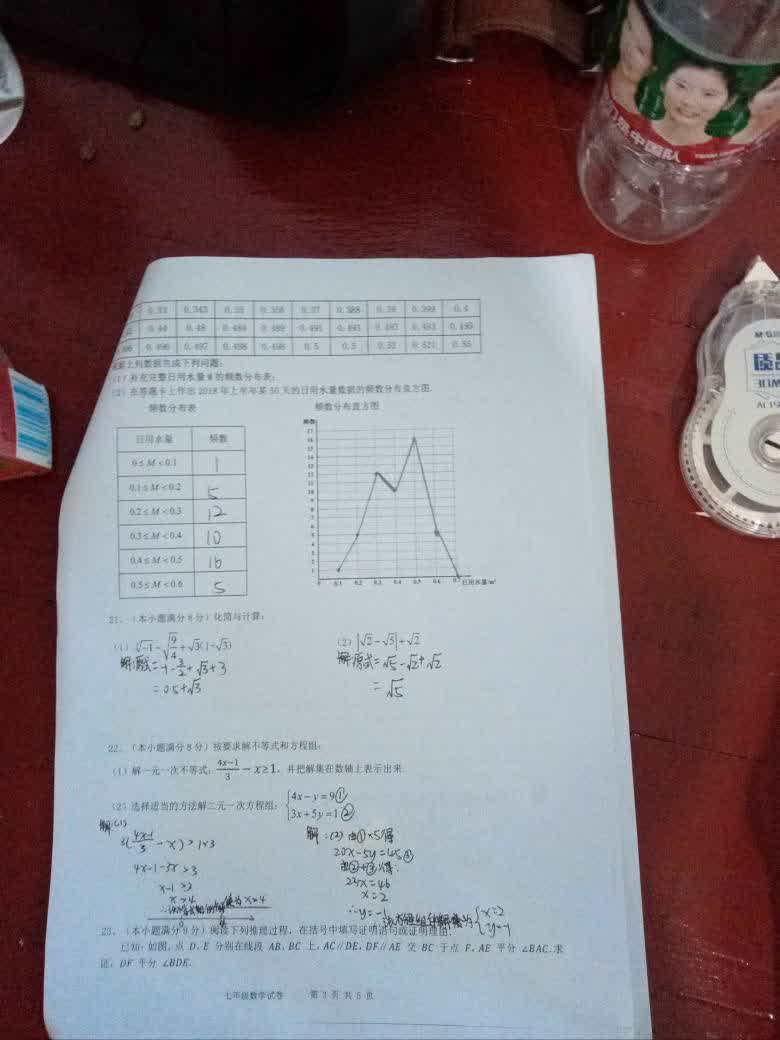 中国队
0.343 0.35 0.356 0.37 0.388 0.39 0.392 0.4
0.44 0.48 0.484 0.489 0.491 0.491 0.492 0.493 0.495
0.496 0.497 0.498 0.498 0.5 0.5 0.52 0.521 0.55
上列数据完成下列问题:
(1)补充完整日用水量 M 的频数分布表;
(2)在答题卡上作出 2018 年上半年某 50 天的日用水量数据的频数分布直方图.
频数分布表 频数分布直方图
日用水量 频数
0≤M<0.1 1
0.1≤M<0.2 5
0.2≤M<0.3 12
0.3≤M<0.4 10
0.4≤M<0.5 16
0.5≤M<0.6 5
频数
17
16
15
14
13
12
11
10
9
8
7
6
5
4
3
2
1
0 0.1 0.2 0.3 0.4 0.5 0.6 0.7 日用水量/m³
21.(本小题满分8分)化简与计算:
(1) ∛-1 - √9/4 + √3(1-√3) (2) |√2-√5|+√2
解:原式=-1-3/2+√3+3 解:原式=√5-√2+√2
=0.5+√3 =√5
22.(本小题满分8分)按要求解不等式和方程组:
(1)解一元一次不等式: (4x-1)/3 - x≥1, 并把解集在数轴上表示出来.
(2)选择适当的方法解二元一次方程组: {4x-y=9① 3x+5y=1②
解:(1) 解:(2)由①×5得
3((4x-1)/3 - x)≥1×3 20x-5y=45③
4x-1-3x≥3 由②+③得:
x-1≥3 23x=46
x≥4 x=2
∴y=-1
x=2
y=-1
0 4
23.(本小题满分8分)阅读下列推理过程,在括号中填写证明语句或证明理由:
已知:如图,点 D、E 分别在线段 AB、BC 上,AC∥DE,DF∥AE 交 BC 于点 F,AE 平分 ∠BAC.求
证:DF 平分 ∠BDE.
七年级数学试卷 第 3 页 共 5 页